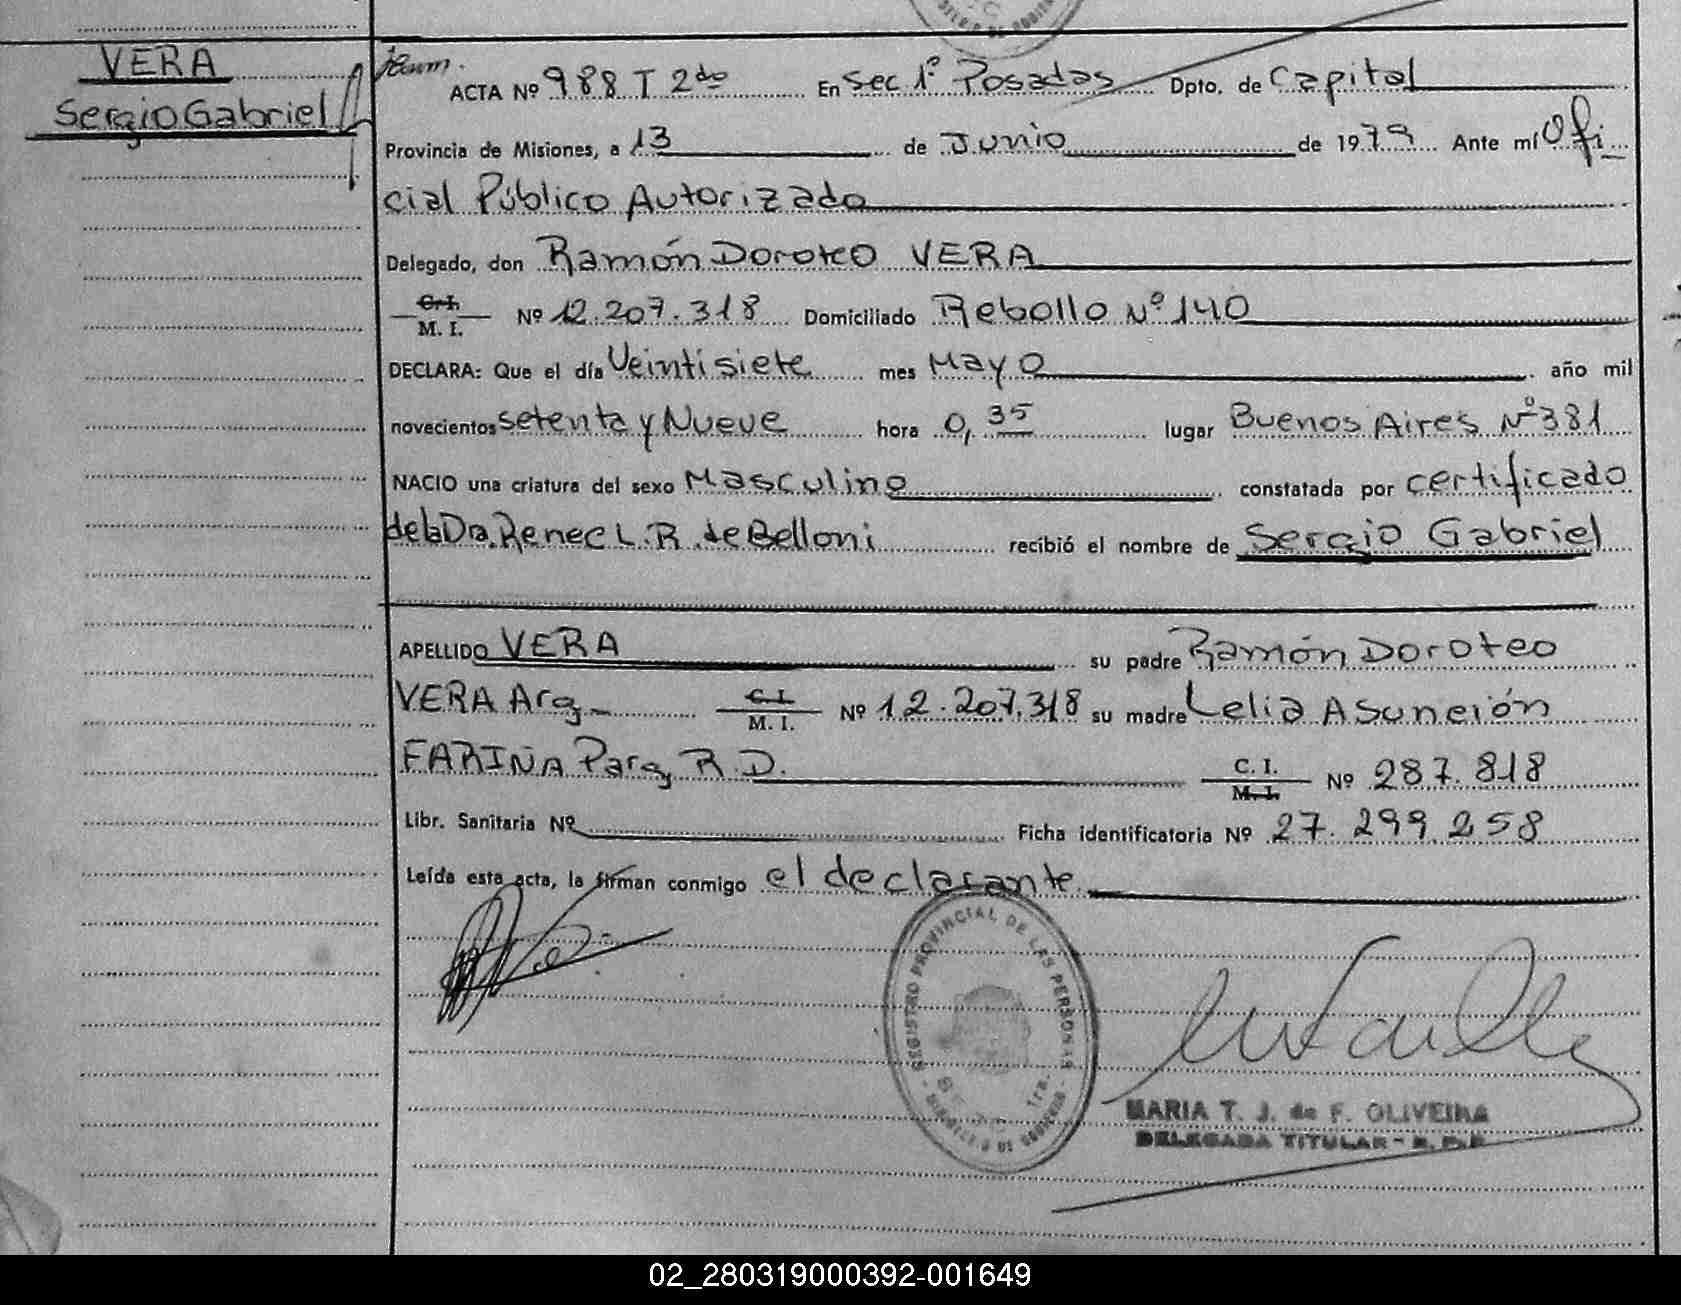 VERA
Sergio Gabriel
ACTA Nº 988 T 2do En Sec 1º Posadas Dpto. de Capital
Provincia de Misiones, a 13 de Junio de 1979 Ante mí Ofi
cial Público Autorizado
Delegado, don Ramón Doroteo VERA
C. I.
M. I. Nº 12.207.318 Domiciliado Rebollo Nº 140
DECLARA: Que el día Veintisiete mes Mayo año mil
novecientos setenta y Nueve hora 0,35 lugar Buenos Aires Nº 381
NACIO una criatura del sexo Masculino constatada por certificado
de la Dra. Renee L. R. de Belloni recibió el nombre de Sergio Gabriel
APELLIDO VERA su padre Ramón Doroteo
VERA Arg. C. I.
M. I. Nº 12.207.318 su madre Lelia Asunción
FARIÑA Parg. R. D. C. I.
M. I. Nº 287.818
Libr. Sanitaria Nº Ficha identificatoria Nº 27.299.258
Leída esta acta, la firman conmigo el declarante
REGISTRO PROVINCIAL DE LAS PERSONAS
MARIA T. J. de F. OLIVEIRA
DELEGADA TITULAR - R. P. P.
02_280319000392-001649